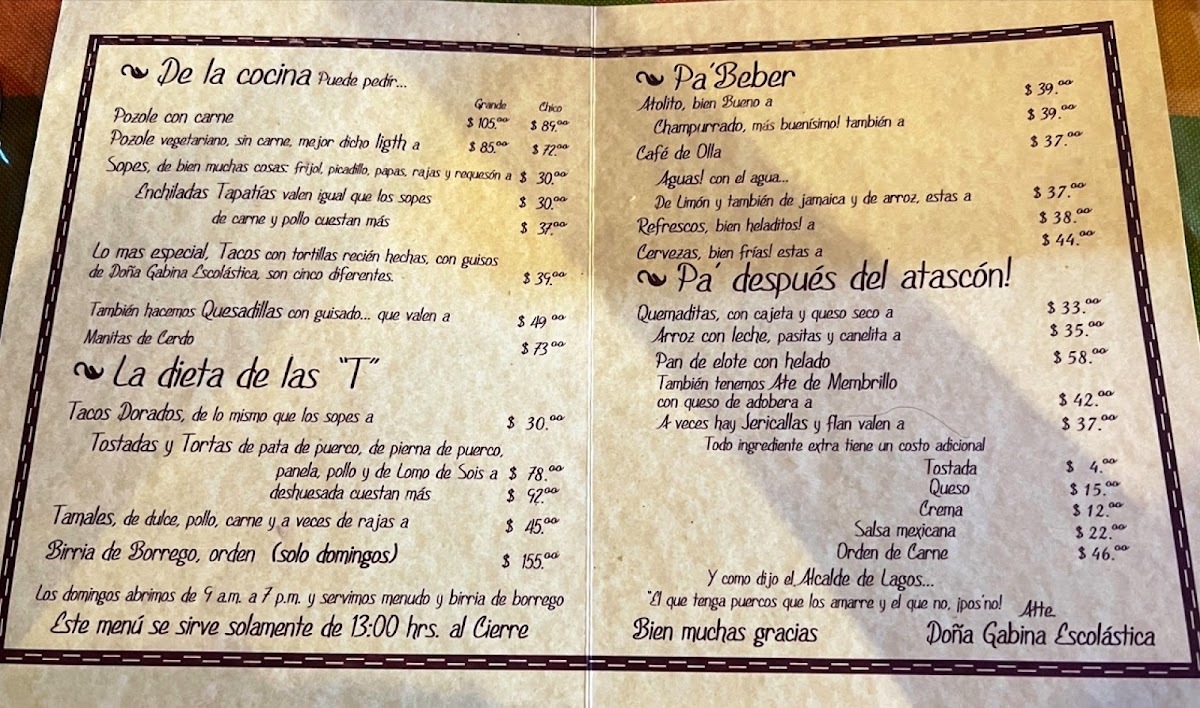 De la cocina Puede pedir...
Grande Chico
Pozole con carne $ 105.00 $ 89.00
Pozole vegetariano, sin carne, mejor dicho ligth a $ 85.00 $ 72.00
Sopes, de bien muchas cosas: frijol, picadillo, papas, rajas y requesón a $ 30.00
Enchiladas Tapatías valen igual que los sopes $ 30.00
de carne y pollo cuestan más $ 37.00
Lo mas especial, Tacos con tortillas recién hechas, con guisos
de Doña Gabina Escolástica, son cinco diferentes. $ 39.00
También hacemos Quesadillas con guisado... que valen a $ 49.00
Manitas de Cerdo $ 73.00
La dieta de las "T"
Tacos Dorados, de lo mismo que los sopes a $ 30.00
Tostadas y Tortas de pata de puerco, de pierna de puerco,
panela, pollo y de Lomo de Sois a $ 78.00
deshuesada cuestan más $ 92.00
Tamales, de dulce, pollo, carne y a veces de rajas a $ 45.00
Birria de Borrego, orden (solo domingos) $ 155.00
Los domingos abrimos de 9 a.m. a 7 p.m. y servimos menudo y birria de borrego
Este menú se sirve solamente de 13:00 hrs. al Cierre
Pa´Beber
Atolito, bien Bueno a $ 39.00
Champurrado, más buenísimo! también a $ 39.00
Café de Olla $ 37.00
Aguas! con el agua...
De Limón y también de jamaica y de arroz, estas a $ 37.00
Refrescos, bien heladitos! a $ 38.00
Cervezas, bien frías! estas a $ 44.00
Pa´ después del atascón!
Quemaditas, con cajeta y queso seco a $ 33.00
Arroz con leche, pasitas y canelita a $ 35.00
Pan de elote con helado $ 58.00
También tenemos Ate de Membrillo
con queso de adobera a $ 42.00
A veces hay Jericallas y flan valen a $ 37.00
Todo ingrediente extra tiene un costo adicional
Tostada $ 4.00
Queso $ 15.00
Crema $ 12.00
Salsa mexicana $ 22.00
Orden de Carne $ 46.00
Y como dijo el Alcalde de Lagos...
"El que tenga puercos que los amarre y el que no, ¡pos´no!
Atte.
Bien muchas gracias Doña Gabina Escolástica